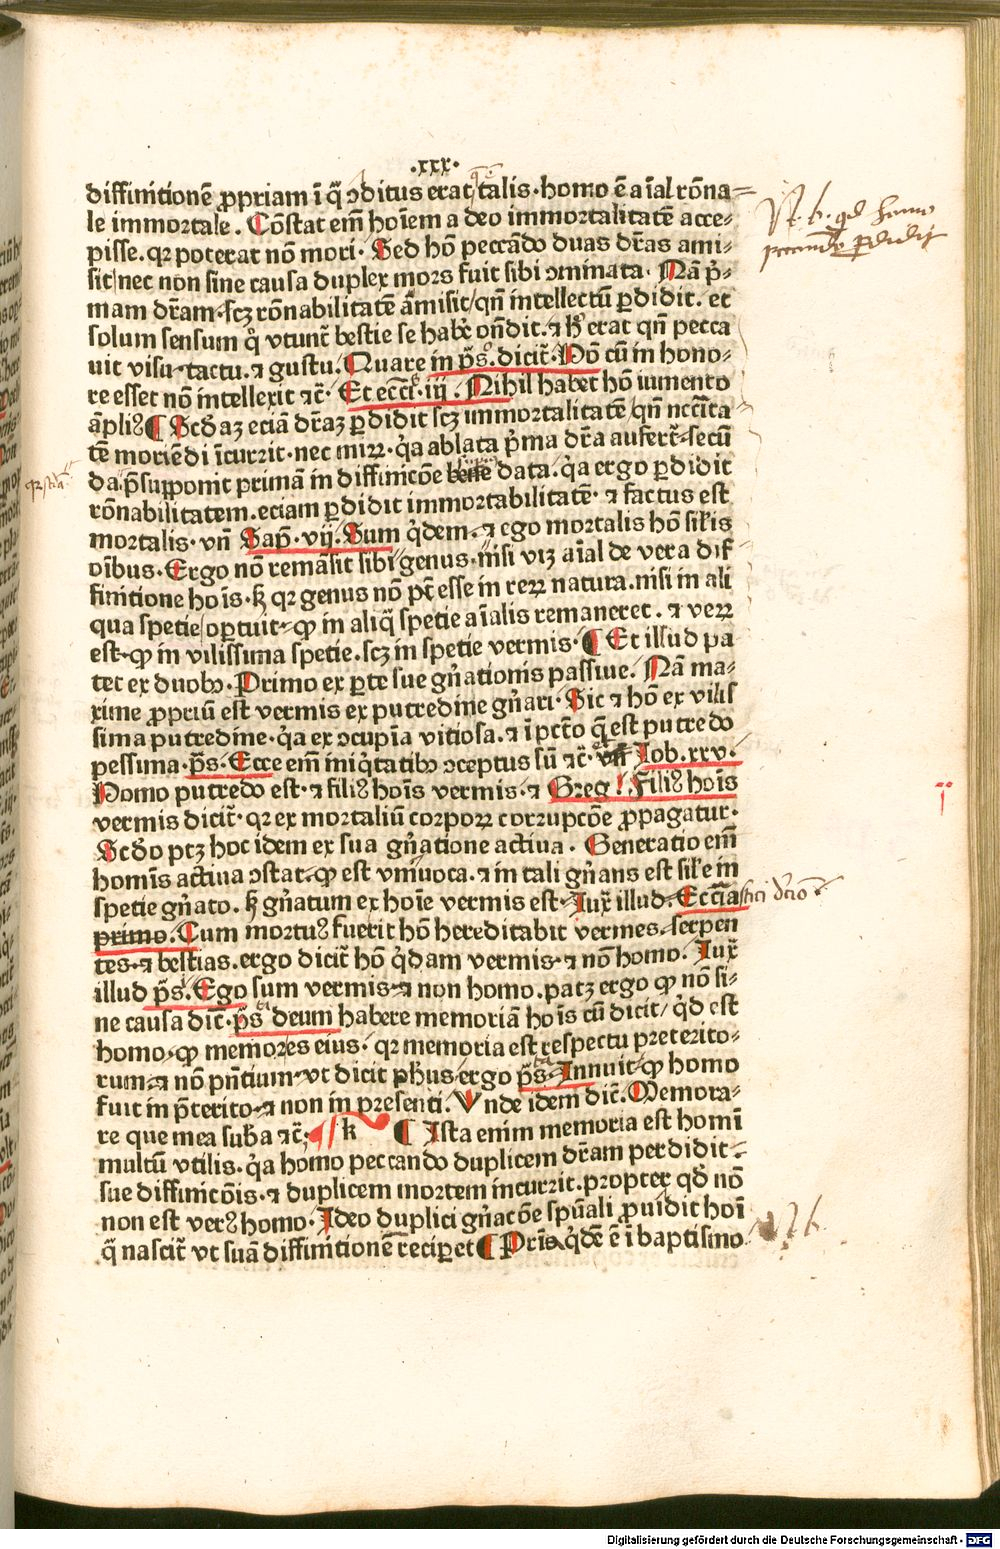 .xxx.
diffinitionē ꝓpriam ī q̄ ↄditus erat talis. homo ē aīal rōna=
le immortale. Cōstat em̄ hoīem adeo immortalitatē acce=
pisse. qꝛ poterat nō mori. Sed hō peccādo duas dr̄as ami=
sit/nec non sine causa duplex mors fuit sibi ↄminata. Nā p̄=
mam dr̄am.scꝫ rōnabilitatē āmisit/qn̄ intellectū ꝑdidit. et
solum sensum q̄ vtunt̄ bestie se habe͛ on̄dit. ⁊ h̄ erat qn̄ pecca
uit visu. tactu. ⁊ gustu. Quare in p̄s. dicit̄. Hō cū in hono=
re esset nō intellexit ⁊c̄. Et ecc̄. iij. Nihil habet hō iumento
āpliꝰ ¶ Scd̄aꝫ eciā dr̄aꝫ ꝑdidit scꝫ immortalitatē qn̄ nc̄cīta=
tē moriēdi īcurrit. nec mirꝝ. q̄a ablata p̄ma dr̄a aufert̄. secū
da p̄supponit primā in diffinicōe data. q̄a ergo ꝑdidit
rōnabilitatem. eciam ꝑdidit immortabilitatē. ⁊ factus est
mortalis. vn̄ Sap̄. vij. Sum q̄dem. ⁊ ego mortalis hō sil̄is
oībus. Ergo nō remāsit sibi genus nisi viꝫ aīal de vera dif=
finitione hoīs. sꝫ qꝛ genus nō pt̄ esse in rerꝝ natura. nisi in ali
qua spetie/oꝑtuit ꝙ in aliq̄ spetie aīalis remaneret. ⁊ verꝝ
est. ꝙ in vilissima spetie. scꝫ in spetie vermis. ¶ Et illud pa
tet ex duobꝫ. Primo ex ꝑte sue gn̄ationis passiue. Nā ma=
xime ꝓpriū est vermis ex putredine gn̄ari. Sic ⁊ hō ex vilis
sima putredine. q̄a ex ↄcupīa vitiosa. ⁊ ī pctō q̄ est putredo
pessima. p̄s. Ecce em̄ iniq̄tatibꝫ ↄceptus sū ⁊c̄. vn̄ Iob. xxv.
Homo putredo est. ⁊ filiꝰ hoīs vermis. ⁊ Greg. Filiꝰ hoīs
vermis dicit̄. qꝛ ex mortaliū corporꝝ corrupcōe ꝓpagatur.
Scd̄o ptꝫ hoc idem ex sua gn̄atione actiua. Generatio em̄
homīs actiua ↄstat. ꝙ est vniuoca. ⁊ in tali gn̄ans est sil̄e in
spetie gn̄ato. sꝫ gn̄atum ex hoīe vermis est. Iux̄ illud. Ecc̄ia
primo. Cum mortuꝰ fuerit hō hereditabit vermes. serpen
tes. ⁊ bestias. ergo dicit̄ hō q̄dam vermis. ⁊ nō homo. Iux̄
illud p̄s. Ego sum vermis ⁊ non homo. patꝫ ergo ꝙ nō si=
ne causa dic̄. p̄s deum habere memoriā hoīs cū dicit/ q̄d est
homo. ꝙ memores eius. qꝛ memoria est respectu preterito=
rum. ⁊ nō pn̄tium. vt dicit ph̄us. ergo p̄s. Innuit. ꝙ homo
fuit in p̄terito. ⁊ non in presenti. Vnde idem dic̄. Memora=
re que mea sub̄a ⁊c̄. k ¶ Ista enim memoria est homī
multū vtilis. q̄a homo peccando duplicem dr̄am perdidit
sue diffinicōis. ⁊ duplicem mortem incurrit. propter qd̄ nō
non est verꝰ homo. Ideo duplici gn̄acōe spūali ꝓuidit hoī
q̄ nascit̄ vt suā diffinitionē reciꝑet ¶ Prīa q̄dē ē ī baptismo